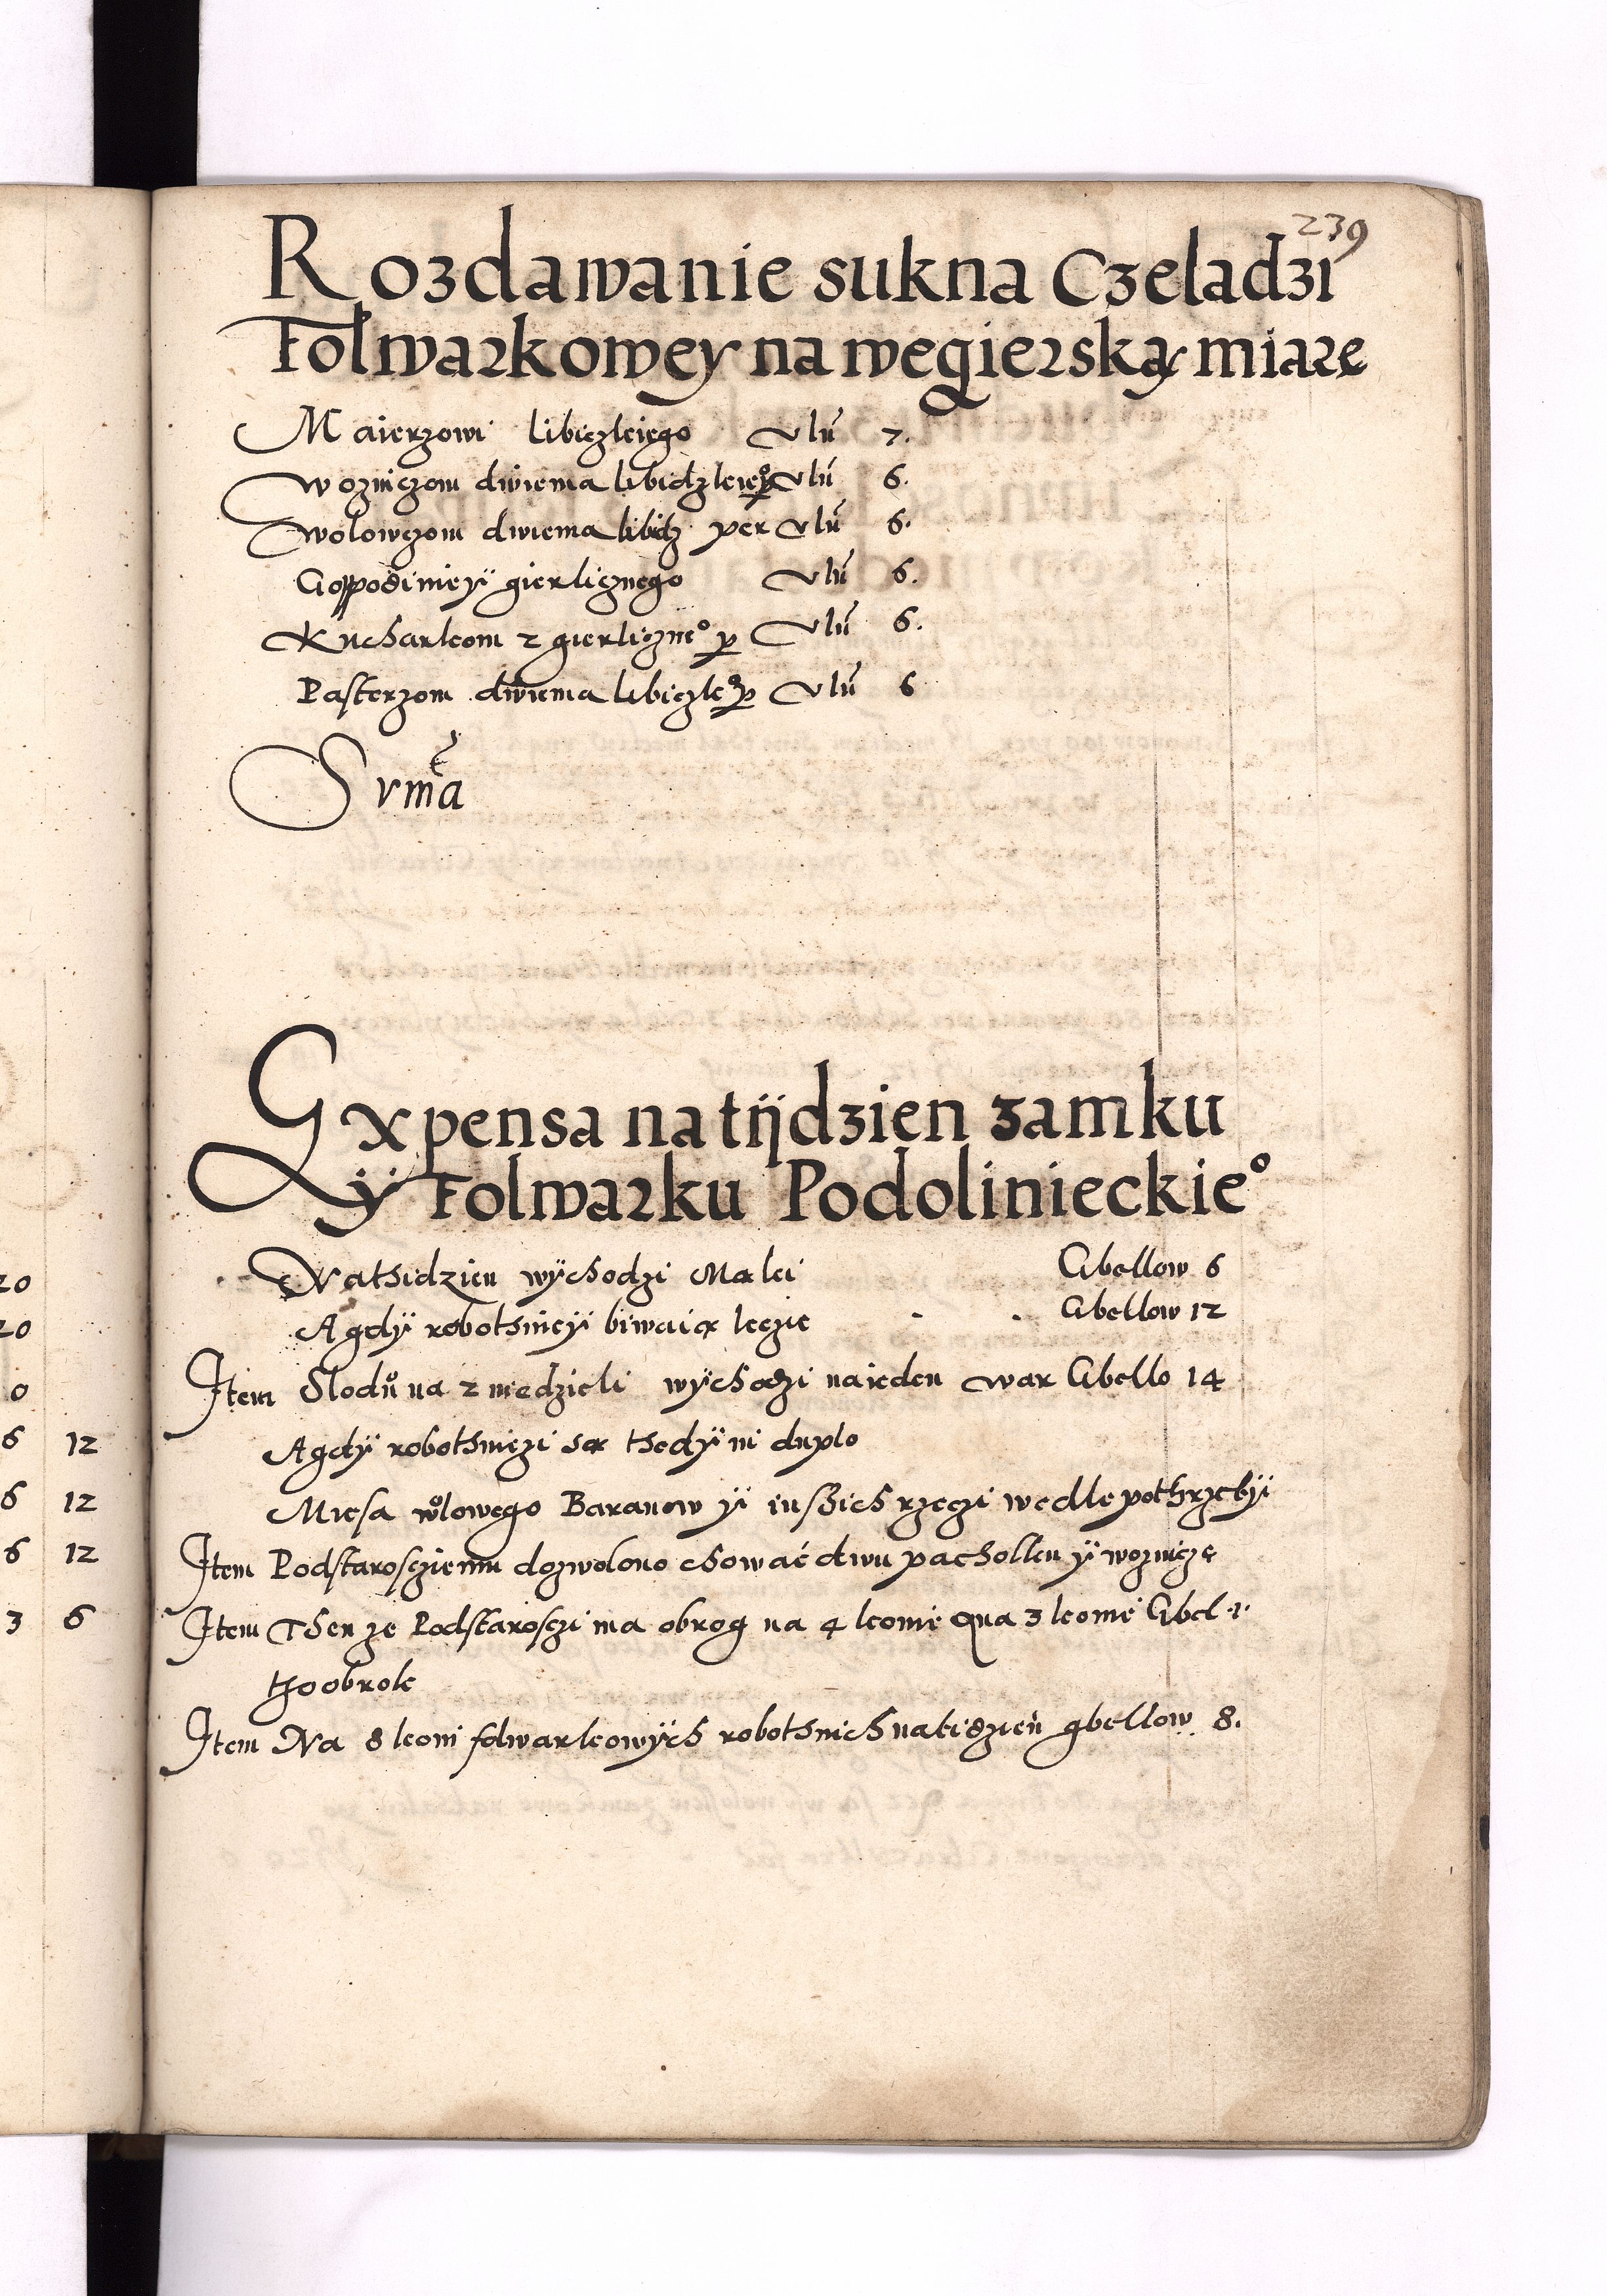 239
Rozdawanie sukna Czeladzi
Folwarkowey na węgierską miarę
Maierzowi libiczkiego Vlń 7.
Wozniczom dwiema libiczkiego per Vlń 6.
Wolowczom dwiema libicz per Vlń 6.
Gospodinieÿ gierlicznego Vlń 6.
Kucharkom 2 gierliczne° per Vlń 6.
Pasterzom dwiema libiczke° per Vlń 6
Sum̃a
Expensa na tÿdzien zamku
ÿ Folwarku Podolinieckie°
Na thidzien wÿchodzi Mąki Gbellow 6
A gdÿ robothnicÿ biwaią leczie Gbellow 12
Item Slodů na 2 niedzieli wÿchodzi na ieden war Gbello 14
A gdÿ robothniczi są thedÿ in duplo
Miesa wolowego Baranow ÿ inszich rzeczi wedle pothrzebÿ
Item Podstarosciemu dozwolono chować dwu pacholku ÿ woznicze
Item Then ze Podstarosczi ma obrog na 4 konie a na 3 konie Gbel 1.
tho obrok
Item Na 8 koni folwarkowÿch robothnich na tidzien gbellow 8.
20
20
0
6 12
6 12
6 12
3 6